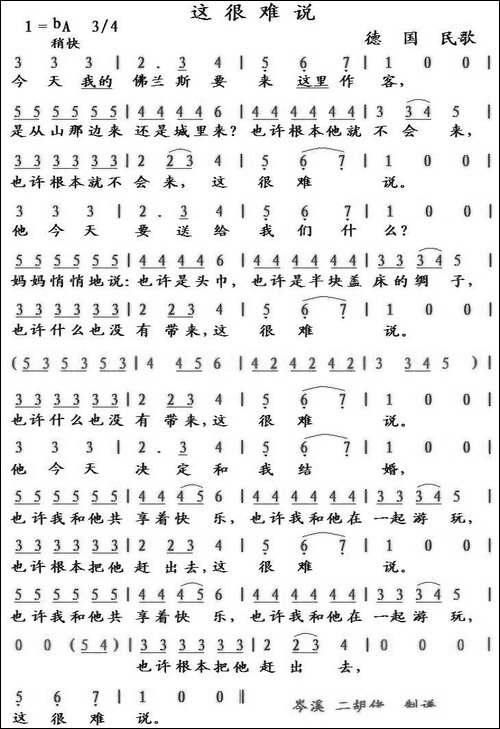 这很难说
1=bA 3/4
德国 民歌
稍快
3 3 3 | 2 . 3 4 | 5 6 7 | 1 0 0 |
今天我的佛兰斯要来这里作客,
5 5 5 5 5 5 | 4 4 4 4 6 | 4 4 4 4 4 4 | 3 3 4 5 |
是从山那边来还是城里来?也许根本他就不会来,
3 3 3 3 3 3 | 2 2 3 4 | 5 6 7 | 1 0 0 |
也许根本就不会来,这很难说。
3 3 3 | 2 . 3 4 | 5 6 7 | 1 0 0 |
他今天要送给我们什么?
5 5 5 5 5 5 | 4 4 4 4 6 | 4 4 4 4 4 4 | 3 3 3 4 5 |
妈妈悄悄地说:也许是头巾,也许是半块盖床的绸子,
3 3 3 3 3 3 | 2 2 3 4 | 5 6 7 | 1 0 0 |
也许什么也没有带来,这很难说。
( 5 3 5 3 5 3 | 4 4 5 6 | 4 2 4 2 4 2 | 3 3 4 5 ) |
3 3 3 3 3 3 | 2 2 3 4 | 5 6 7 | 1 0 0 |
也许什么也没有带来,这很难说。
3 3 3 | 2 . 3 4 | 5 6 7 | 1 0 0 |
他今天决定和我结婚,
5 5 5 5 5 5 | 4 4 4 5 6 | 4 4 4 4 4 4 | 3 3 3 4 5 |
也许我和他共享着快乐,也许我和他在一起游玩,
3 3 3 3 3 3 | 2 2 3 4 | 5 6 7 | 1 0 0 |
也许根本把他赶出去,这很难说。
5 5 5 5 5 5 | 4 4 4 5 6 | 4 4 4 4 4 4 | 3 3 3 4 5 |
也许我和他共享着快乐,也许我和他在一起游玩,
0 0 ( 5 4 ) | 3 3 3 3 3 3 | 2 2 3 4 | 0 0 0 |
也许根本把他赶出去,
5 6 7 | 1 0 0 ||
这很难说。
岑溪 二胡 制谱